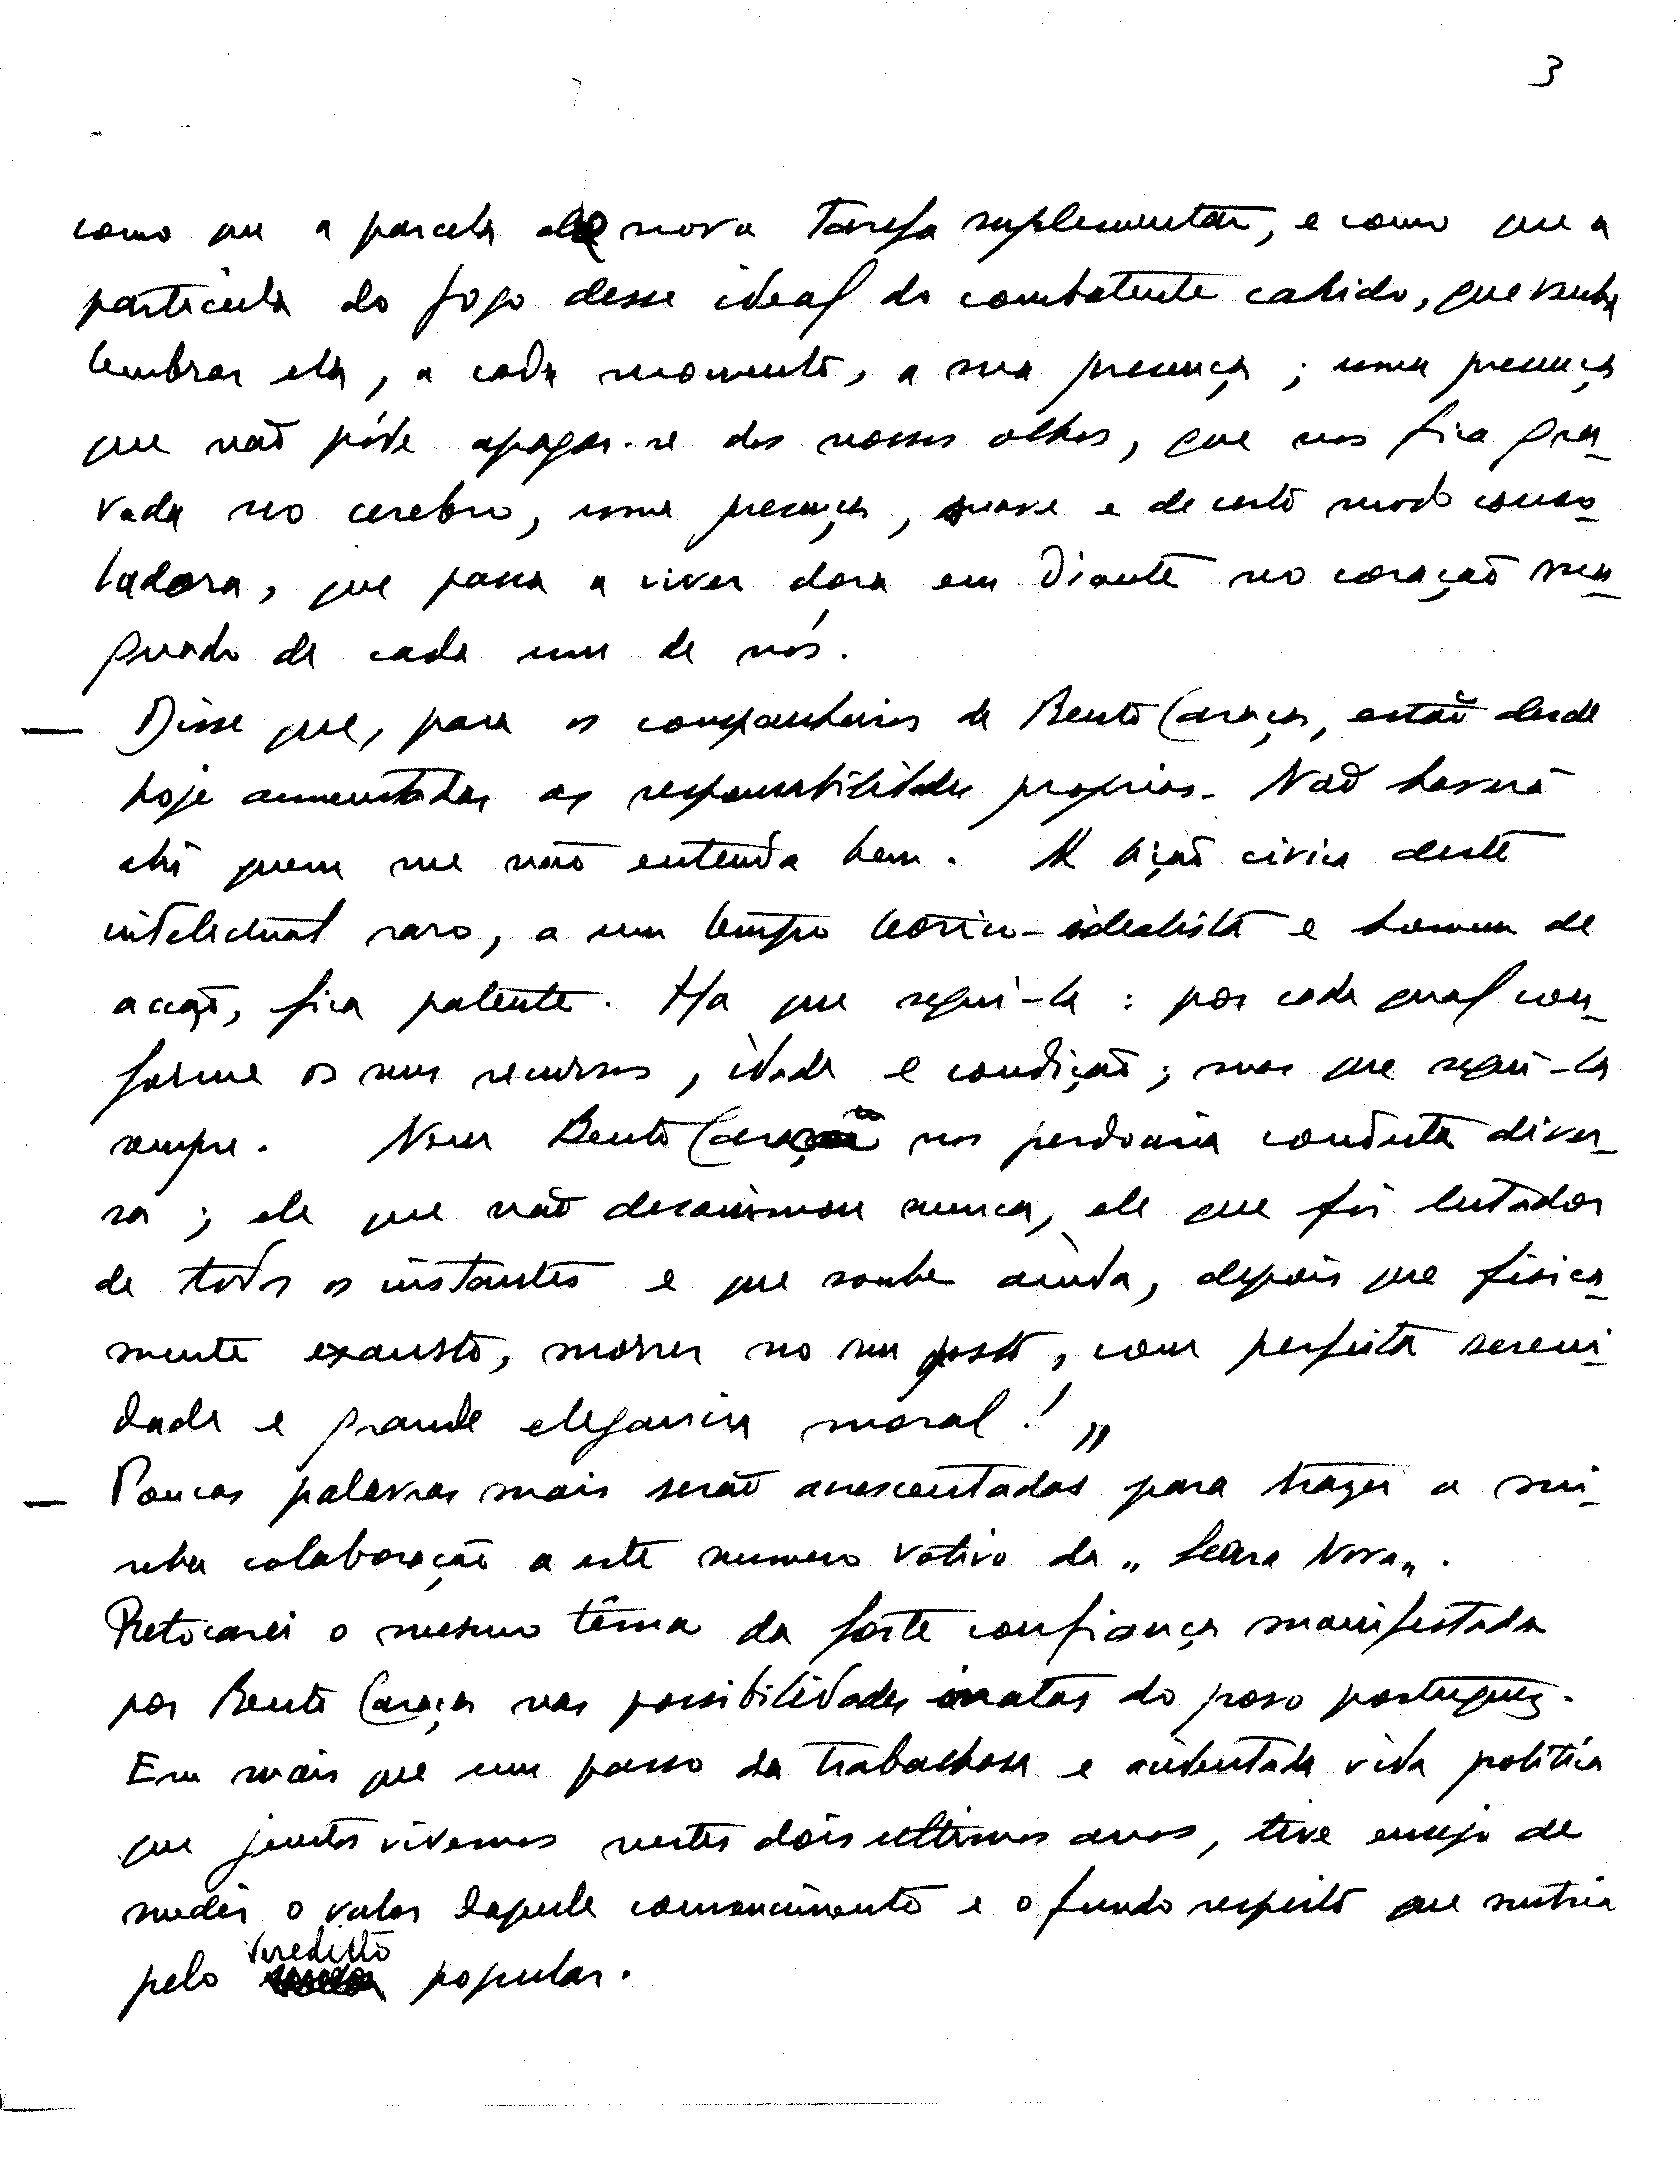 3
como que a parcela de nova tarefa suplementar, e como que a
particula do fogo desse ideal do combatente cahido, que venha
lembrar ela, a cada momento, a sua presença ; uma presença
que não póde apagar-se dos nossos olhos, que nos fica gra-
vada no cerebro, uma presença, suave e de certo modo conso-
ladora, que passa a viver dora em diante no coração ma-
guado de cada um de nós.
— Disse que, para os companheiros de Bento Caraça, estão desde
hoje aumentadas as responsabilidades proprias. Não haverá
ahi quem me não entenda bem. A lição civica deste
intelectual raro, a um tempo teorico-idealista e homem de
acção, fica patente. Ha que segui-la : por cada qual con-
forme os seus recursos, idade e condição ; mas que segui-la
sempre. Nem Bento Caraça nos perdoaria conduta diver-
sa ; ele que não desanimou nunca, ele que foi lutador
de todos os instantes e que soube ainda, depois que fisica-
mente exausto, morrer no seu posto, com perfeita sereni-
dade e grande elegancia moral ! "
— Poucas palavras mais serão acrescentadas para trazer a mi-
nha colaboração a este numero votivo da „ Seara Nova„ .
Retocarei o mesmo têma da forte confiança manifestada
por Bento Caraça nas possibilidades inatas do povo portuguez.
Em mais que um passo da trabalhosa e acidentada vida politica
que juntos vivemos nestes dois ultimos anos, tive ensejo de
medir o valor daquele convencimento e o fundo respeito que nutria
pelo veredicto popular.